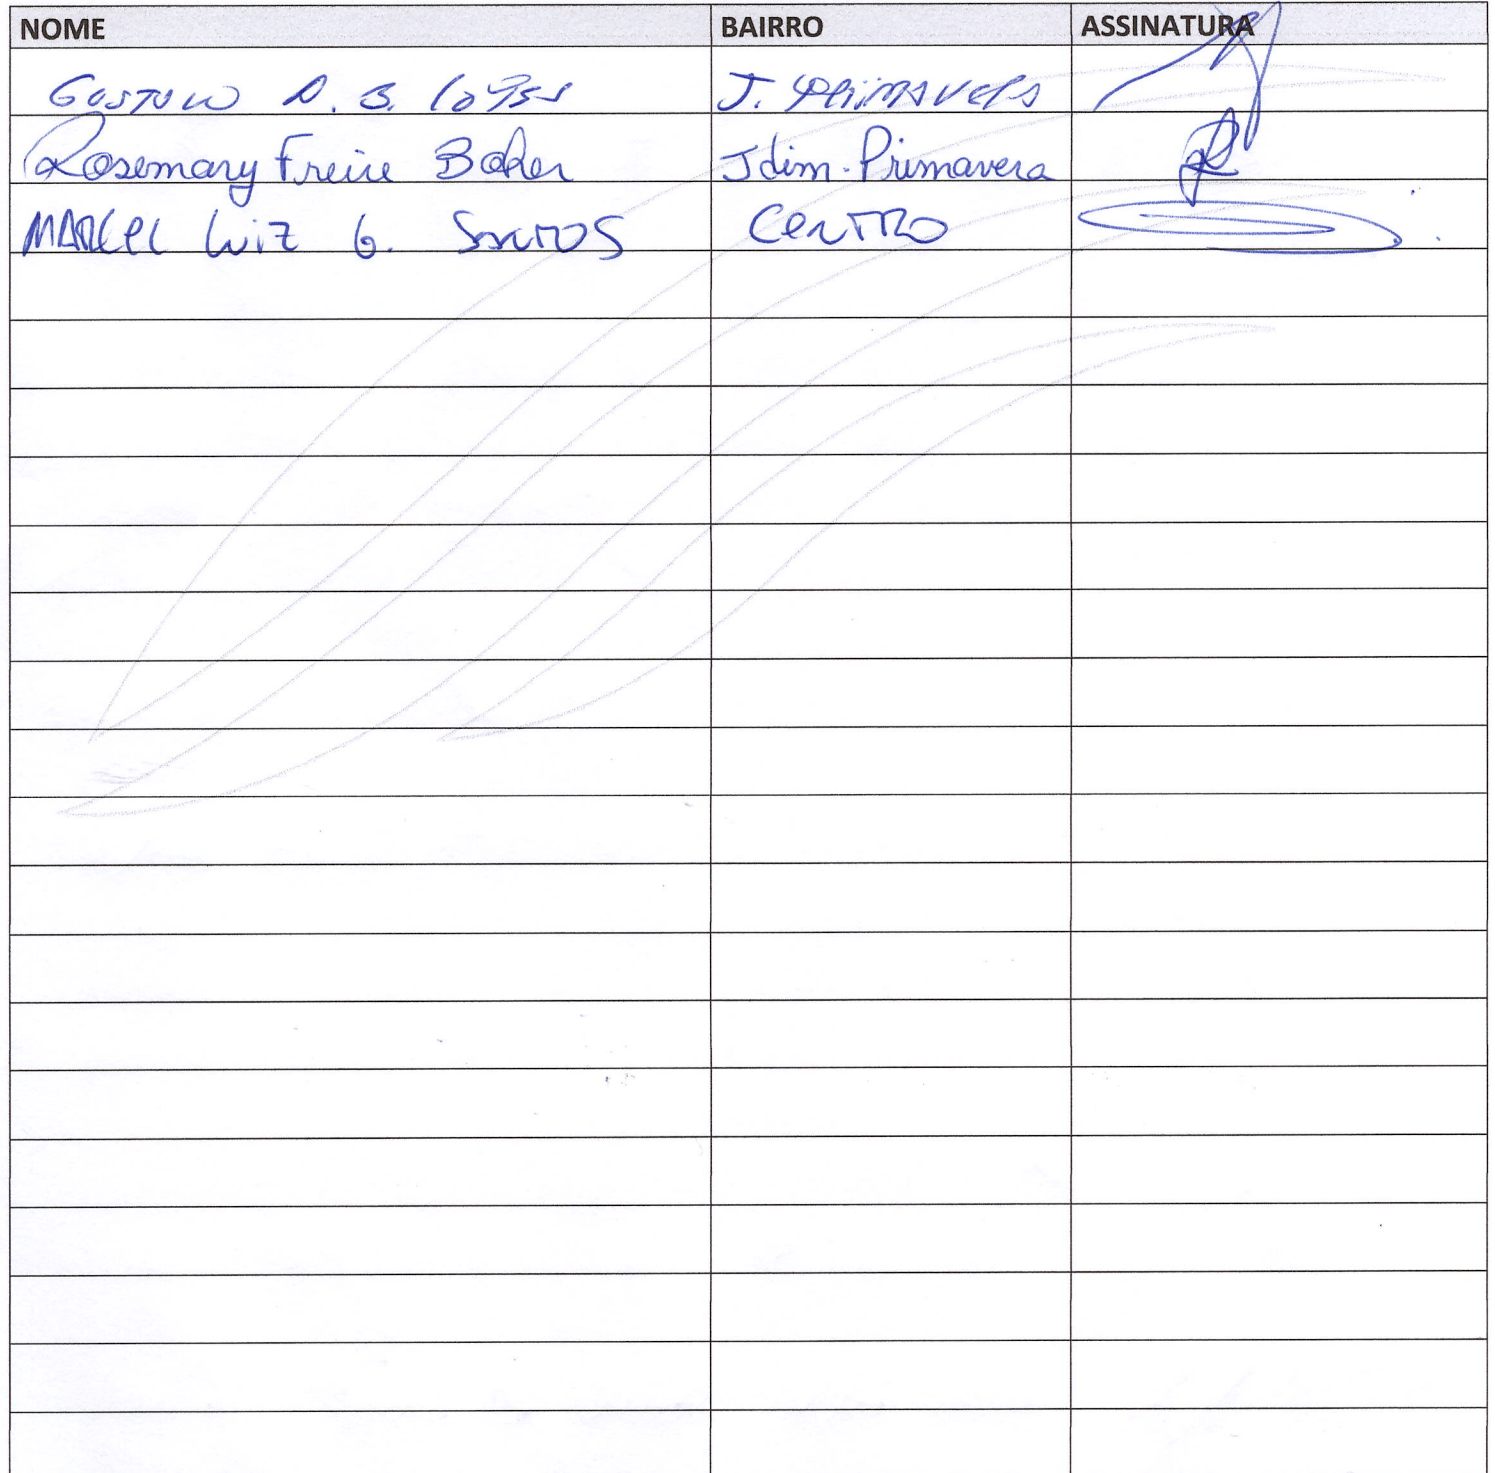 NOME BAIRRO ASSINATURA
Gustavo A. B. Lopes J. Primavera
Rosemary Freire Baker Jdim. Primavera
MARCEL Luiz G. SANTOS CENTRO